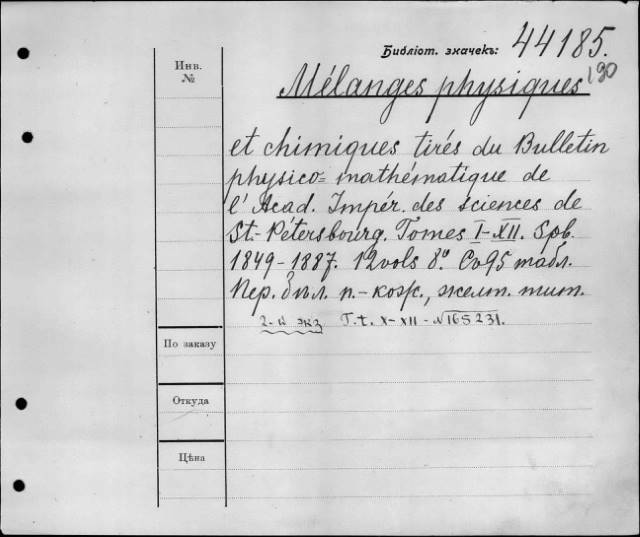 Библіот. значекъ: 44185.
190
Инв.
№
Mélanges physiques
et chimiques tirés du Bulletin
physico=mathématique de
l'Acad. Impér. des sciences de
St.-Pétersbourg. Tomes I-XII. Spb.
1849-1887. 12 vols 8° Cъ 95 табл.
Пер. бѣл. п.-кож., желт. тит.
2-й экз T.t. X-XII-№165231.
По заказу
Откуда
Цѣна